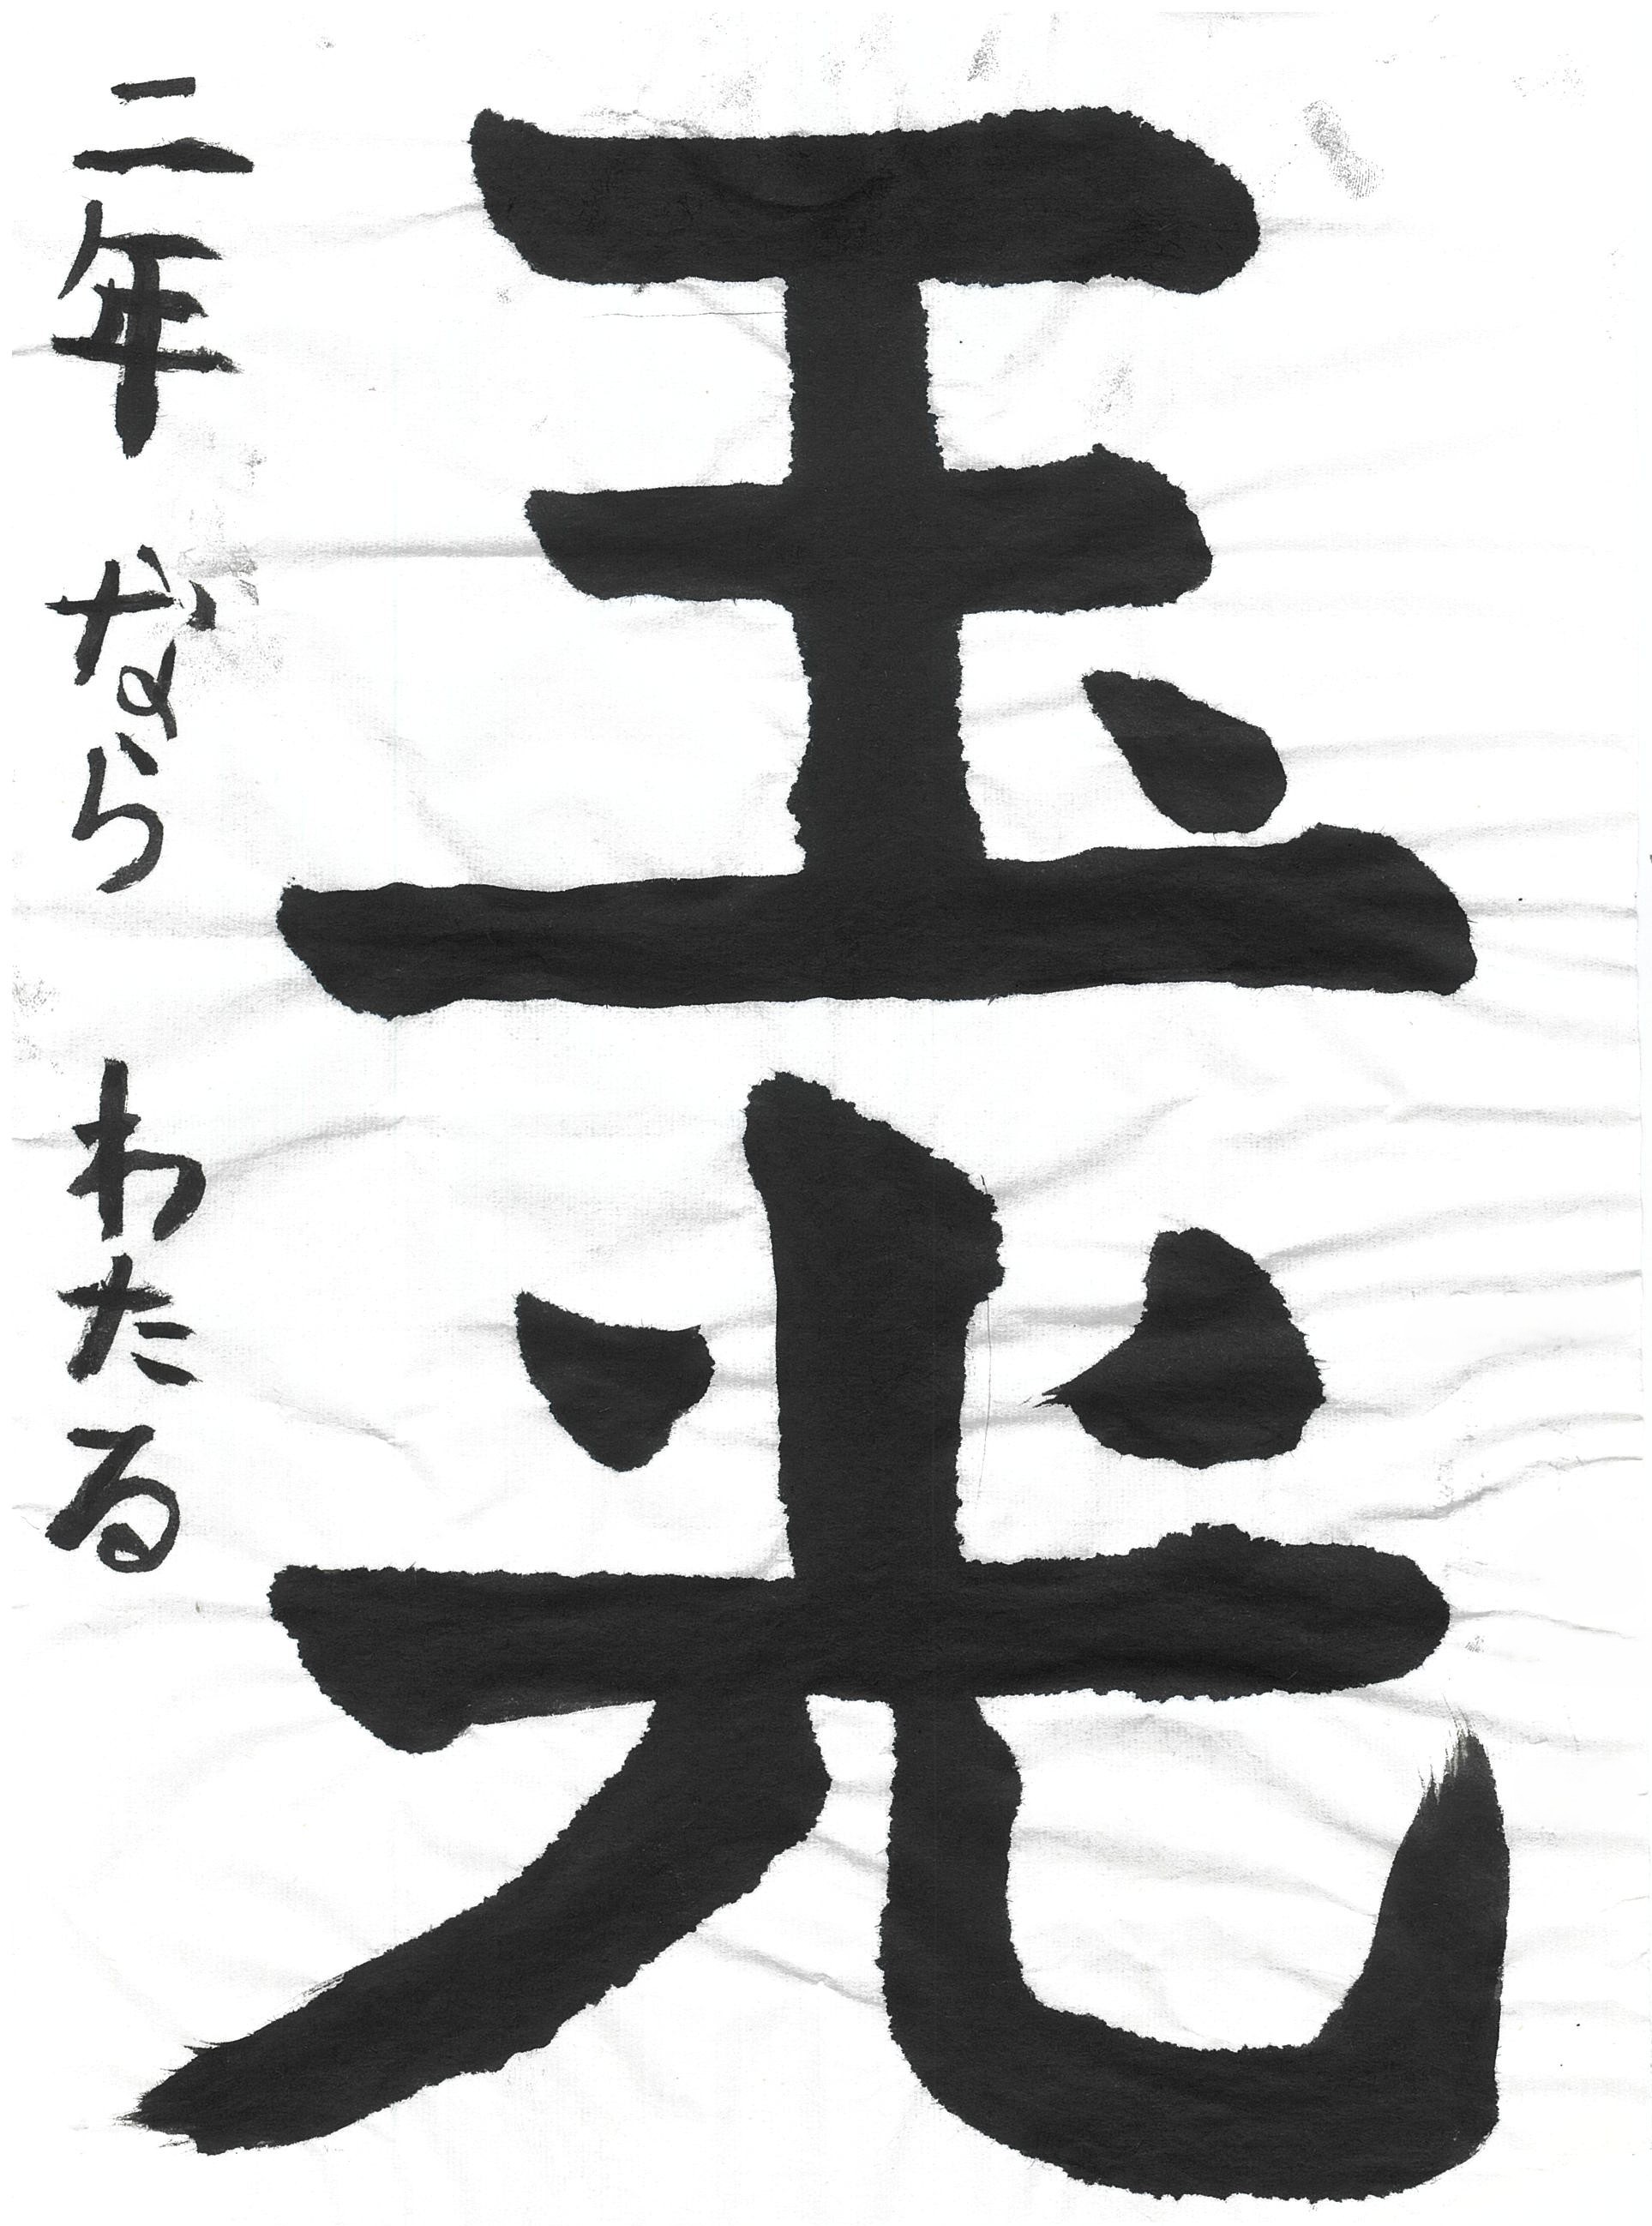 玉光
二年 なら わたる